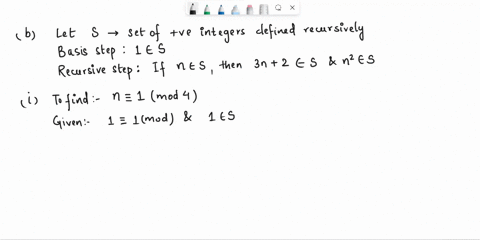 (b) Let S → set of +ve integers defined recursively
Basis step : 1 ∈ S
Recursive step : If n ∈ S, then 3n + 2 ∈ S & n² ∈ S
(i) To find :- n ≡ 1 (mod 4)
Given :- 1 ≡ 1 (mod) & 1 ∈ S